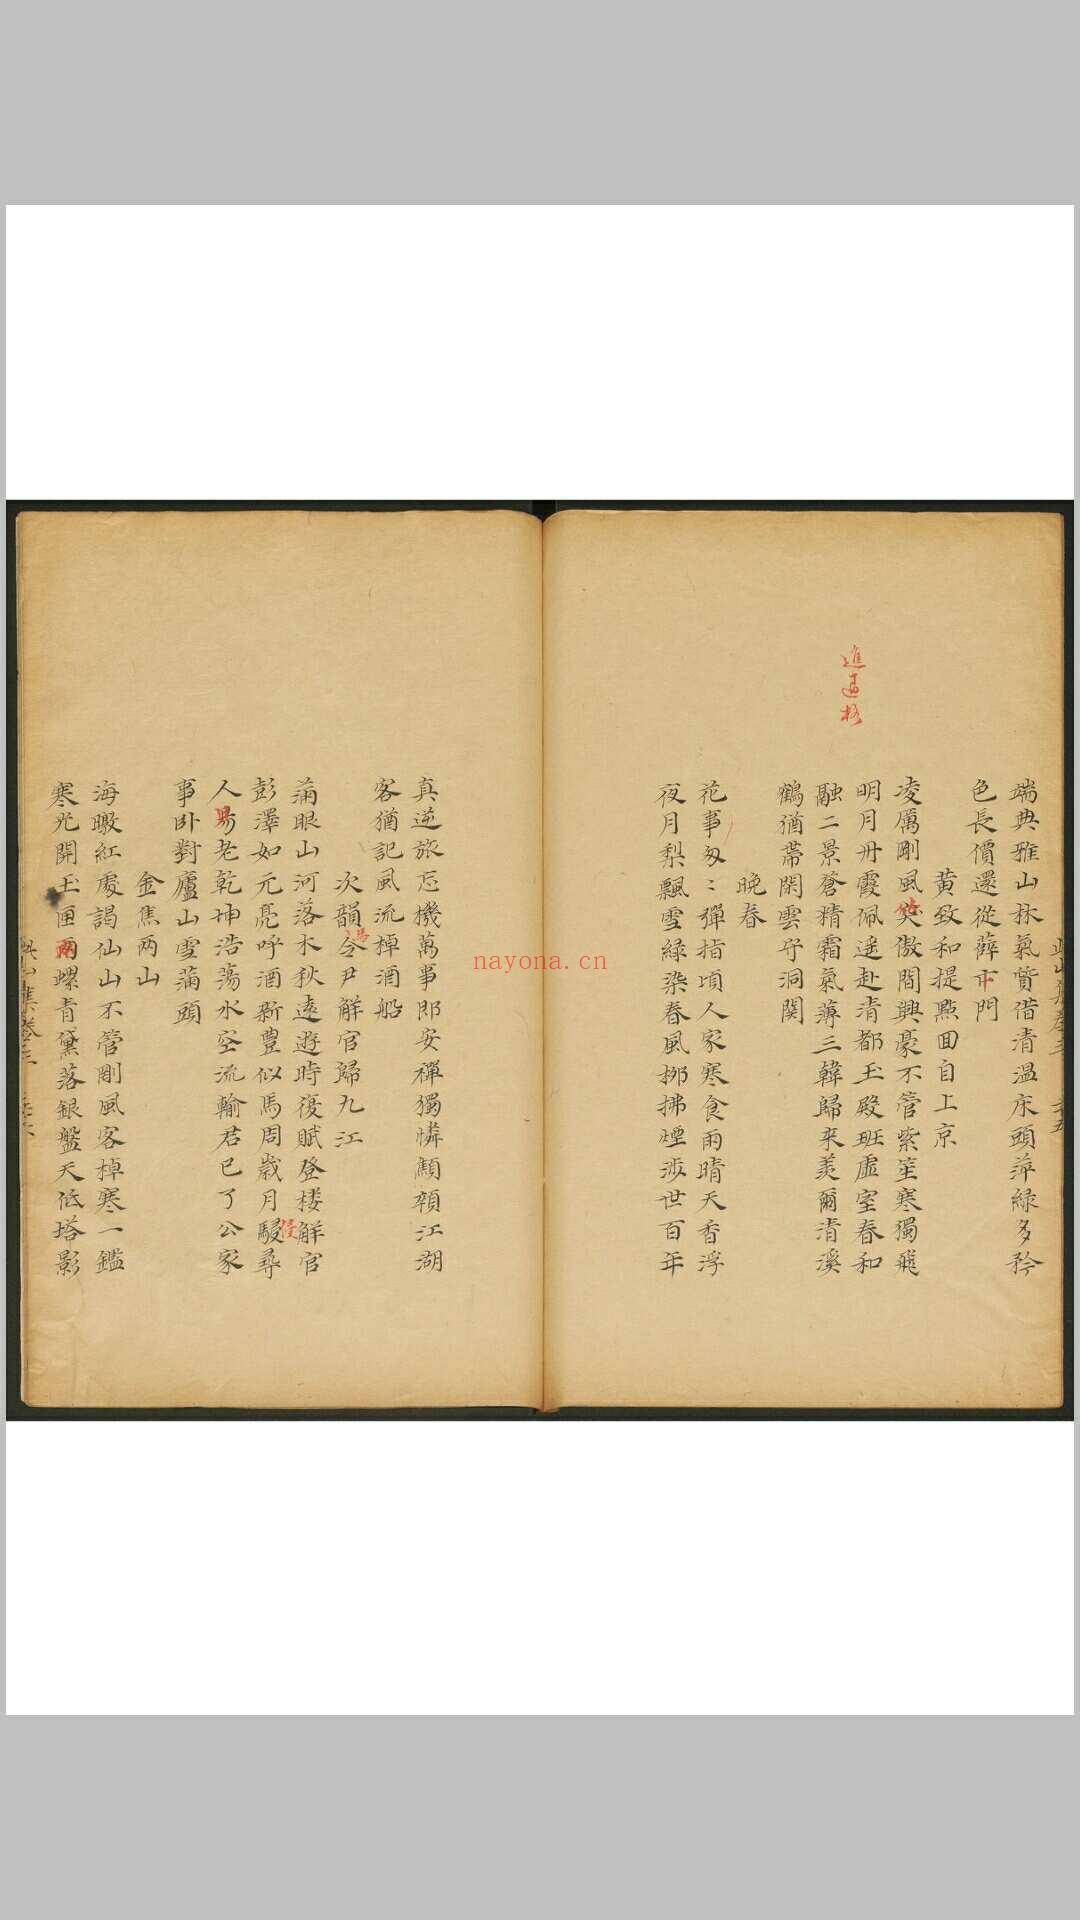 進道格
端典雅山林氣質借清溫床頭萍綠多矜
色長價還從薛卞門
黄致和提點回自上京
凌厲剛風笑傲間興豪不管紫笙寒獨飛
明月丹霞佩遥赴清都玉殿班虚室春和
融二景蒼精霜氣薄三韓歸来羡爾清溪
鶴猶帶閑雲守洞関
晚春
花事匆〻彈指頃人家寒食雨晴天香浮
夜月梨飄雪緑染春風桞拂煙涉世百年
真逆旅忘機萬事即安禪獨憐顦顇江湖
客猶記風流棹酒船
次韻馮令尹解官歸九江
滿眼山河落木秋遠遊時復賦登楼解官
彭澤如元亮呼酒新豊似馬周歲月駸尋
侵
人易老乾坤浩蕩水空流輸君已了公家
事卧對廬山雪滿頭
金焦两山
海暾紅處謁仙山不管剛風客棹寒一鑑
寒光開玉匣两螺青黛落銀盤天低塔影
nayona.cn